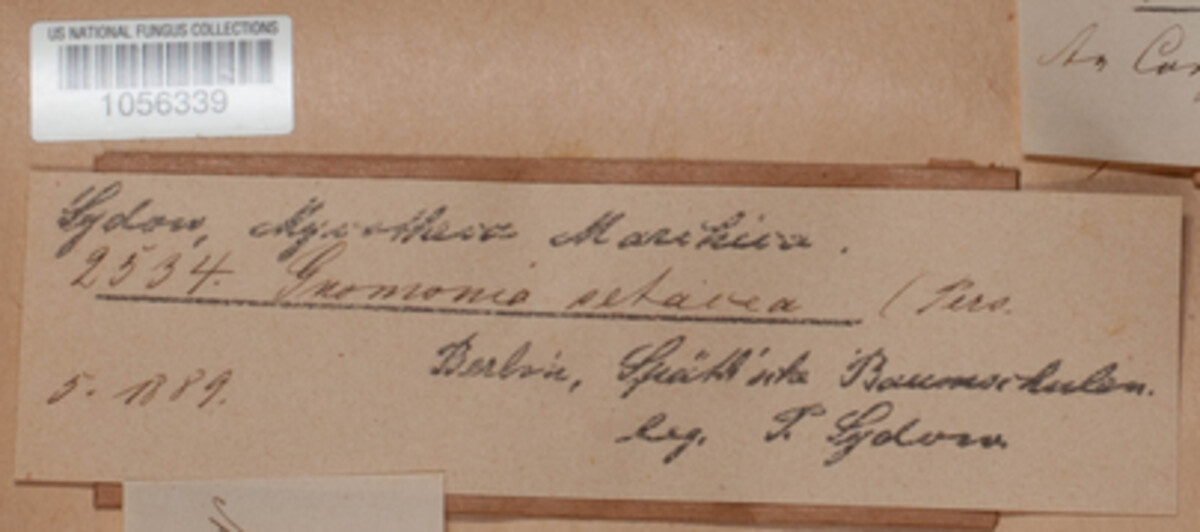 US NATIONAL FUNGUS COLLECTIONS
1056339
Sydow, Mycotheca Marchica.
2534. Gnomonia setacea (Pers.
Berlin, Späth'sche Baumschulen.
5. 1889.
leg. P. Sydow.